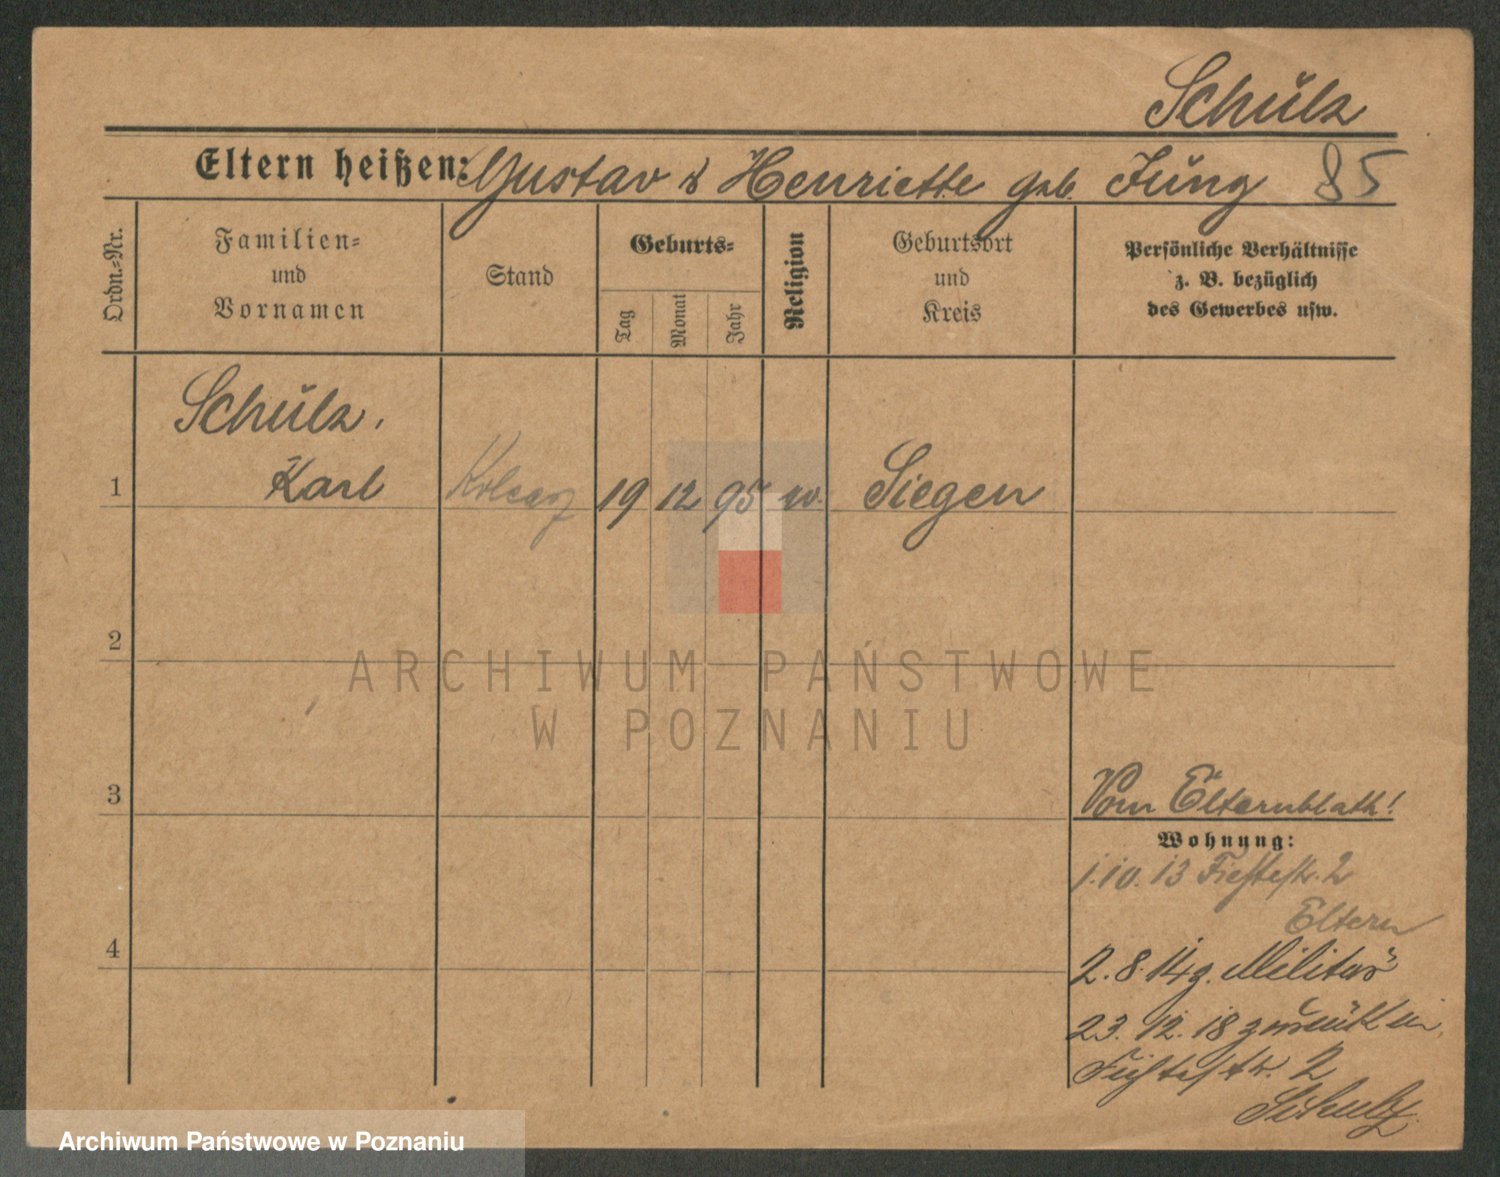 Schulz
Eltern heißen: Gustav & Henriette geb. Jung 85
Ordn.-Nr.
Familien-
und
Vornamen
Stand
Geburts-
Tag
Monat
Jahr
Religion
Geburtsort
und
Kreis
Persönliche Verhältnisse
z. B. bezüglich
des Gewerbes usw.
Schulz,
1 Karl 19 12 95 Siegen
2
ARCHIWUM PAŃSTWOWE
W POZNANIU
3
Vom Elternblatt!
Wohnung:
1.10.13 Fichtestr. 2
Eltern
4
2.8.14 z. Militär
23.12.18 zurück in
Fichtestr. 2
Schulz
Archiwum Państwowe w Poznaniu